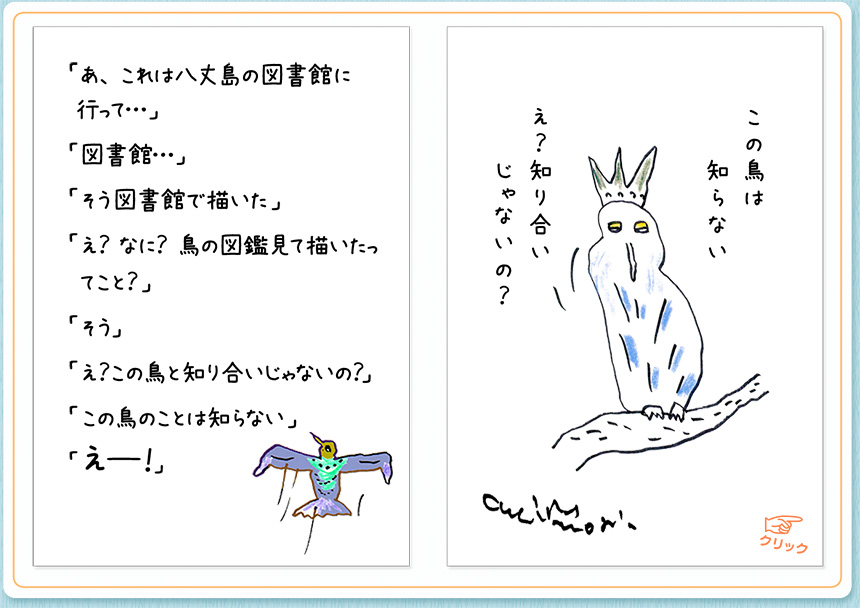 「あ、これは八丈島の図書館に
行って…」
「図書館…」
「そう図書館で描いた」
「え？なに？ 鳥の図鑑見て描いたっ
てこと？」
「そう」
「え？この鳥と知り合いじゃないの？」
「この鳥のことは知らない」
「えー！」
この鳥は
知らない
え？知り合い
じゃないの？
クリック